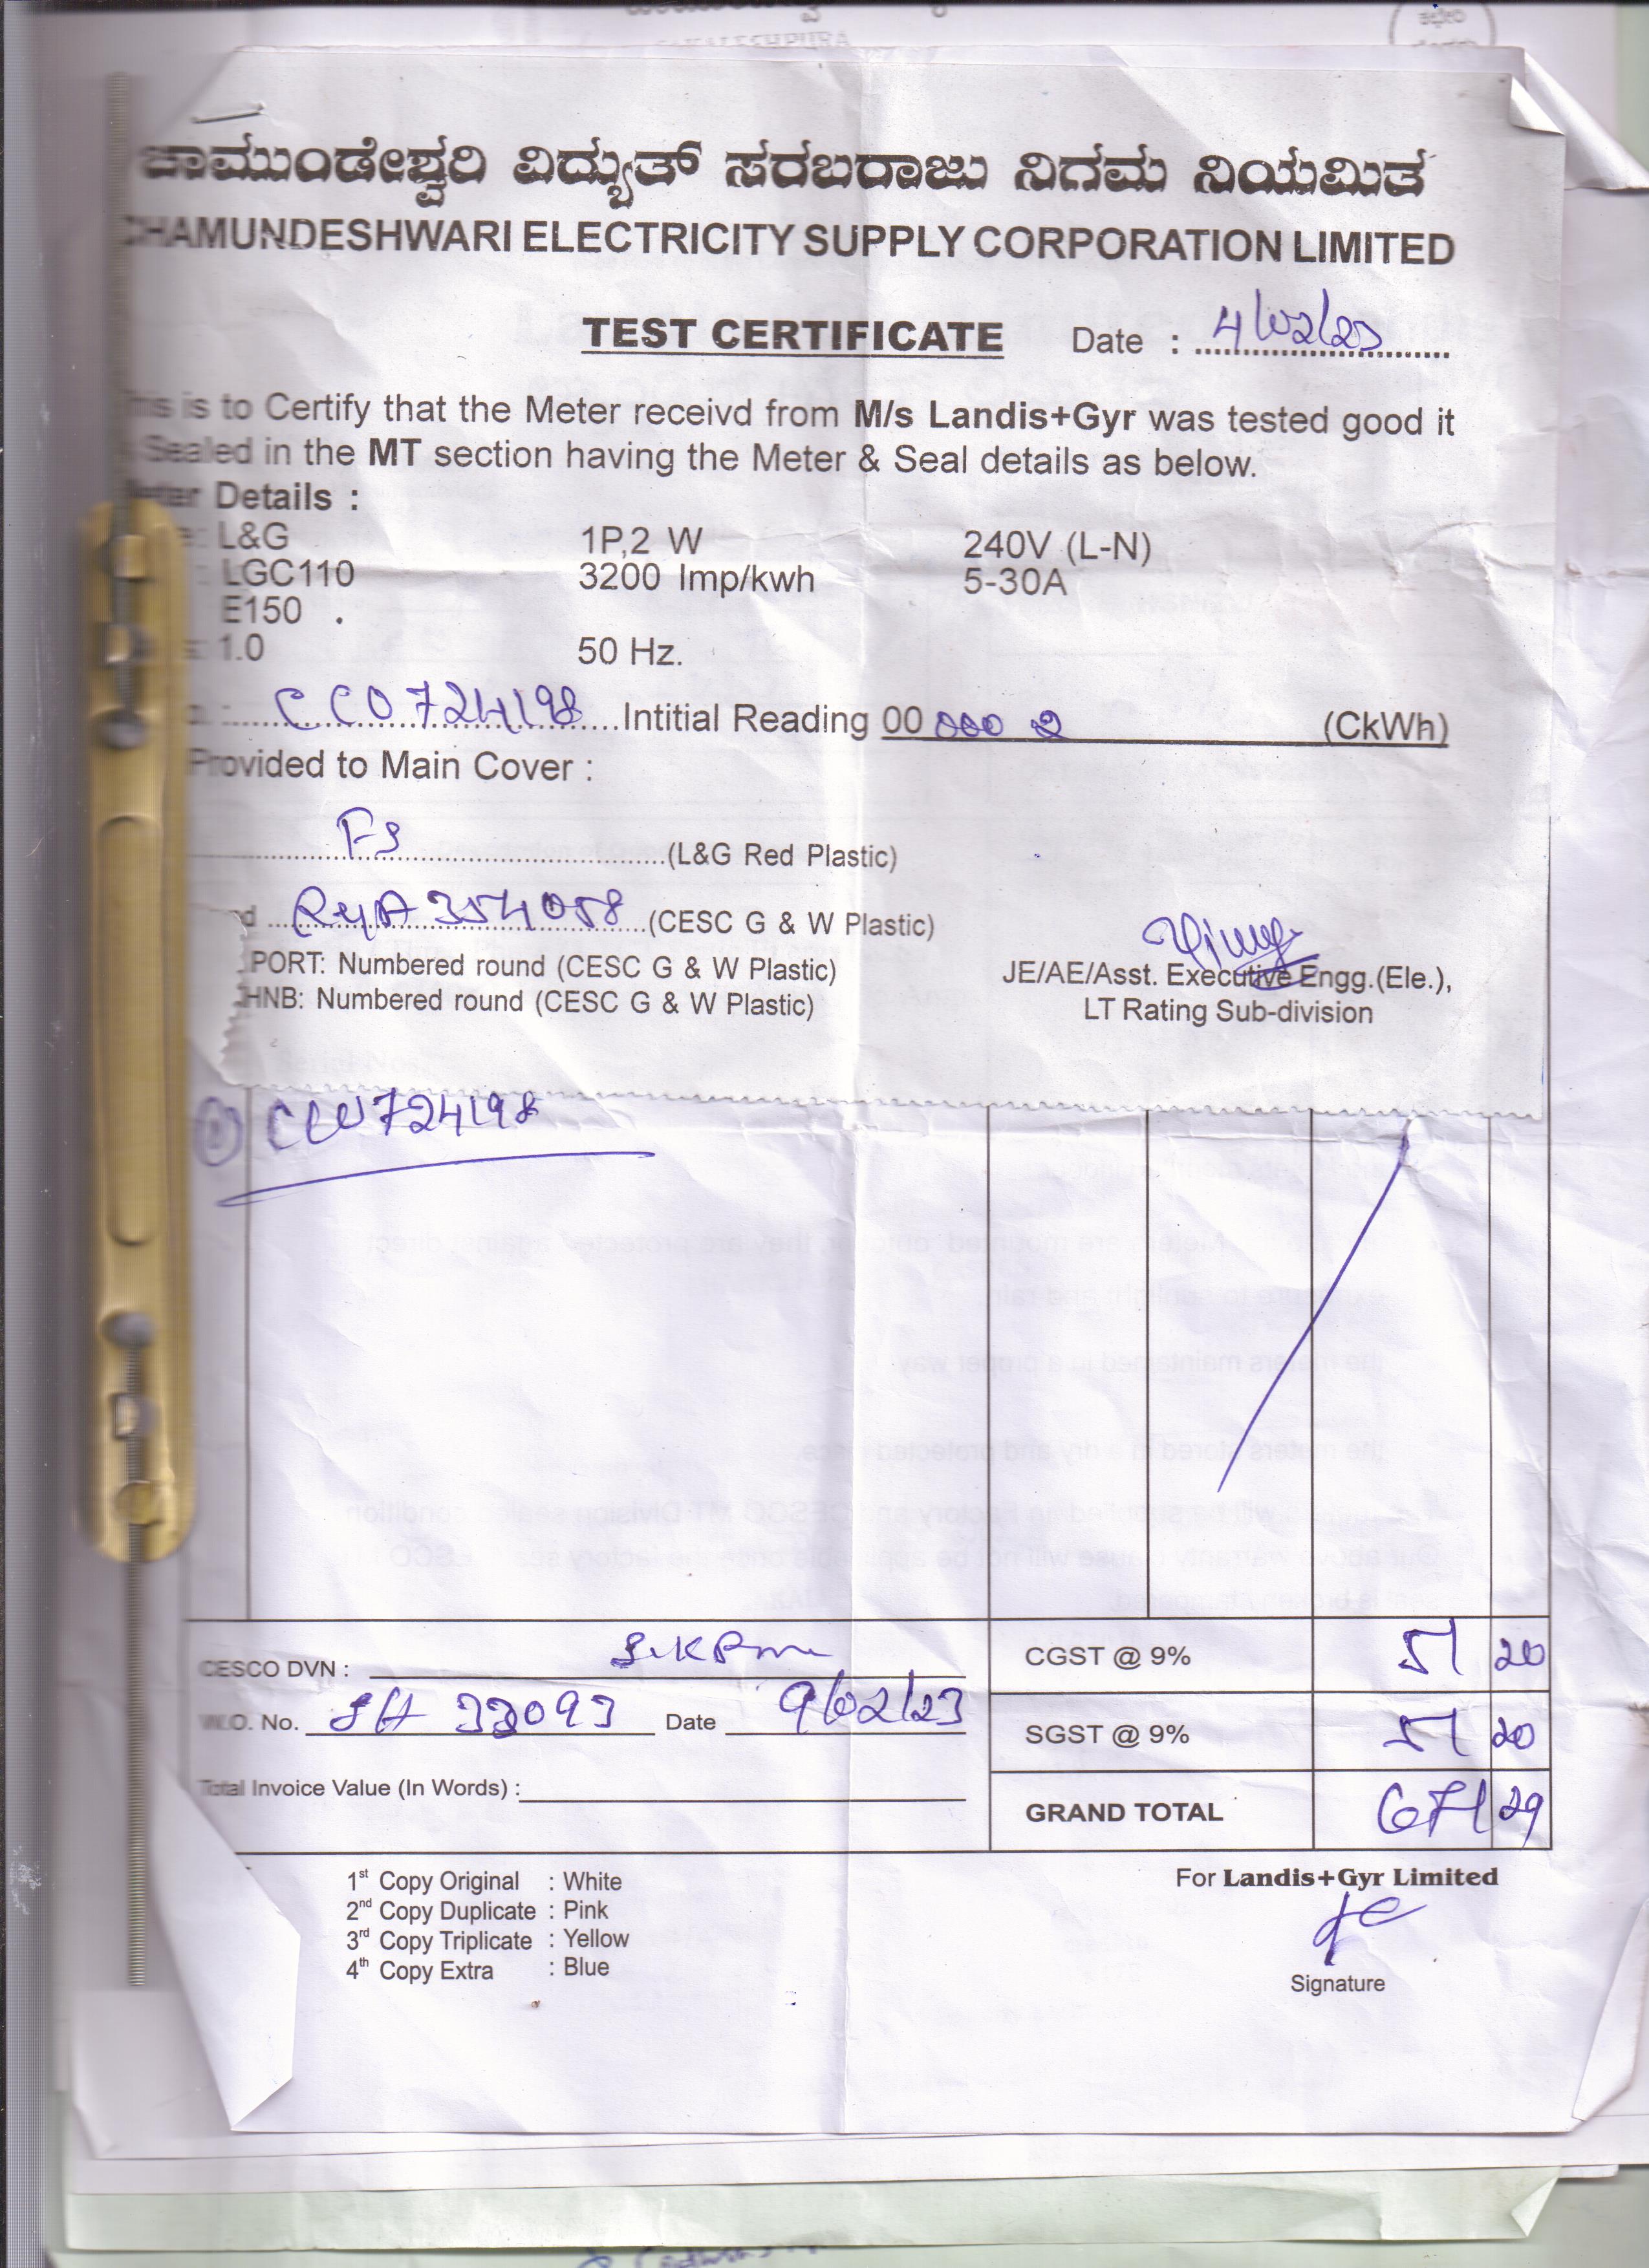 ಚಾಮುಂಡೇಶ್ವರಿ ವಿದ್ಯುತ್ ಸರಬರಾಜು ನಿಗಮ ನಿಯಮಿತ
CHAMUNDESHWARI ELECTRICITY SUPPLY CORPORATION LIMITED
TEST CERTIFICATE Date : 4/02/23
This is to Certify that the Meter receivd from M/s Landis+Gyr was tested good it
Sealed in the MT section having the Meter & Seal details as below.
Meter Details :
L&G 1P,2 W 240V (L-N)
LGC110 3200 Imp/kwh 5-30A
E150 .
1.0 50 Hz.
CC0724198 Intitial Reading 00 000 2 (CkWh)
Provided to Main Cover :
(L&G Red Plastic)
354058 (CESC G & W Plastic)
PORT: Numbered round (CESC G & W Plastic) JE/AE/Asst. Executive Engg.(Ele.),
HNB: Numbered round (CESC G & W Plastic) LT Rating Sub-division
CC0724198
CESCO DVN : CGST @ 9% 51 20
W.O. No. 33093 Date 9/02/23 SGST @ 9% 51 20
Total Invoice Value (In Words) : GRAND TOTAL 671 29
1st Copy Original : White For Landis+Gyr Limited
2nd Copy Duplicate : Pink
3rd Copy Triplicate : Yellow
4th Copy Extra : Blue
Signature